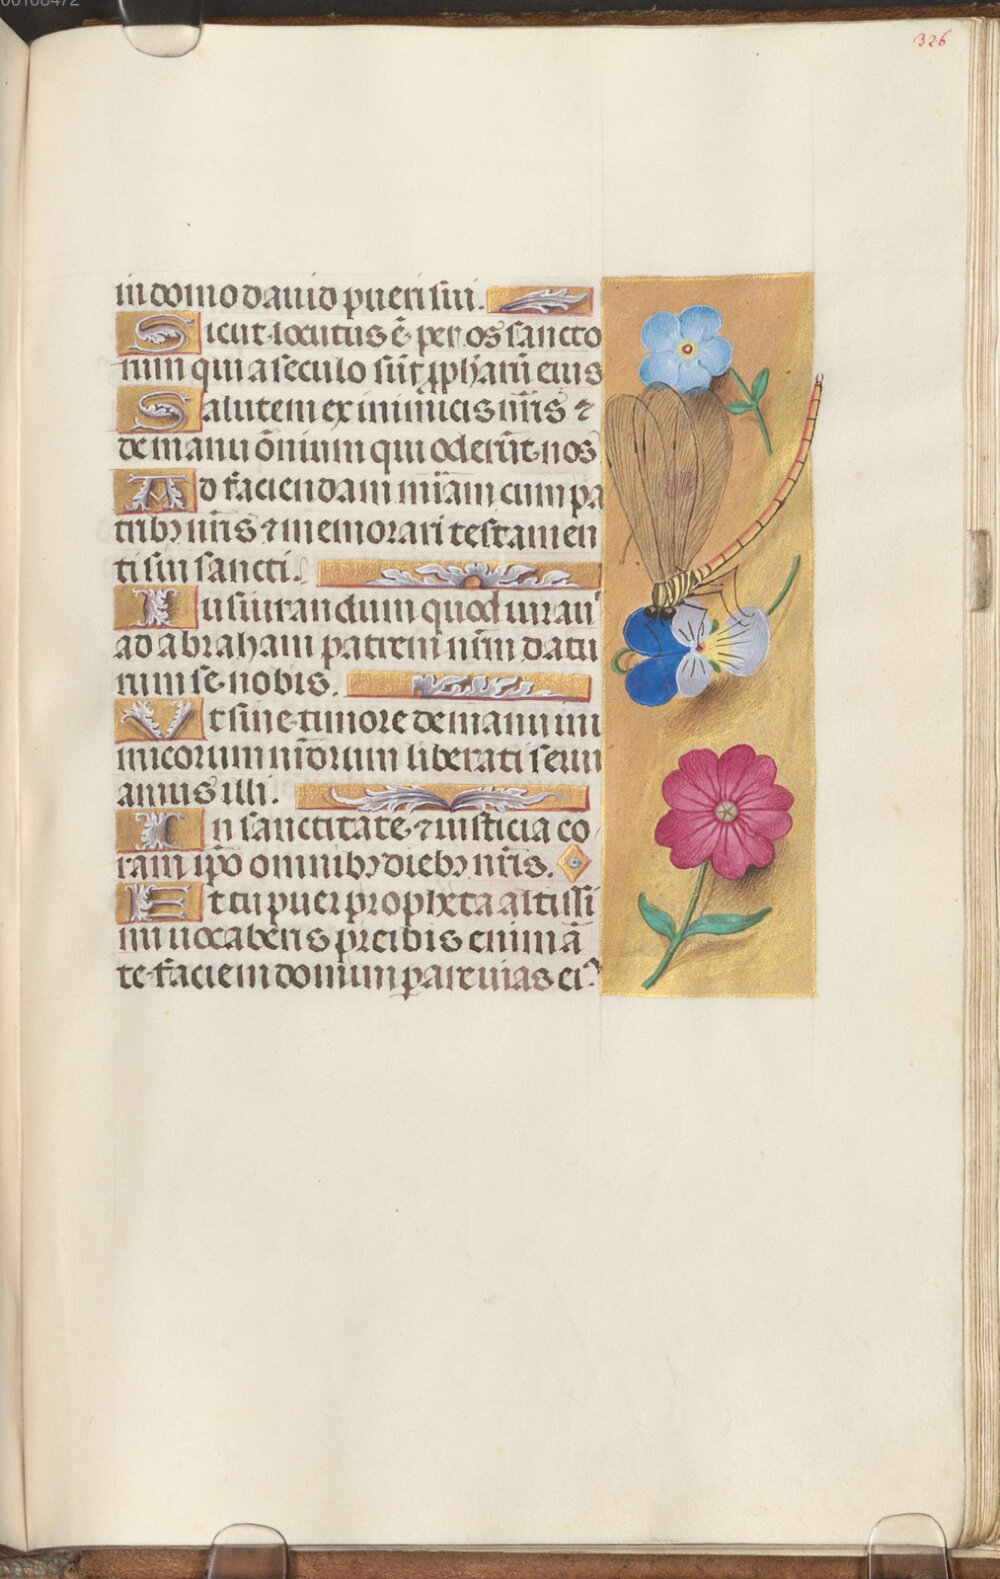 00108472
326
in domo dauid pueri sui.
Sicut locutus ē per os sancto
rum qui a seculo sūt ꝓphātū eius
Salutem ex inimicis nr̄is ⁊
de manu ōnium qui oderūt nos
Ad faciendam mīam cum pa
tribꝫ nr̄is ⁊ memorari testamen
ti sui sancti.
Iusiurandum quod iurauꝰ
ad abraham patrem nr̄m datu
rum se nobis.
Vt sine timore de manu ini
micorum nr̄orum liberati serui
amus illi.
In sanctitate ⁊ iusticia co
ram ip̄o omnibꝫ diebꝫ nr̄is.
Et tu puer propheta altissi
mi uocaberis preibis enim ā
te faciem domini parare uias eiꝰ